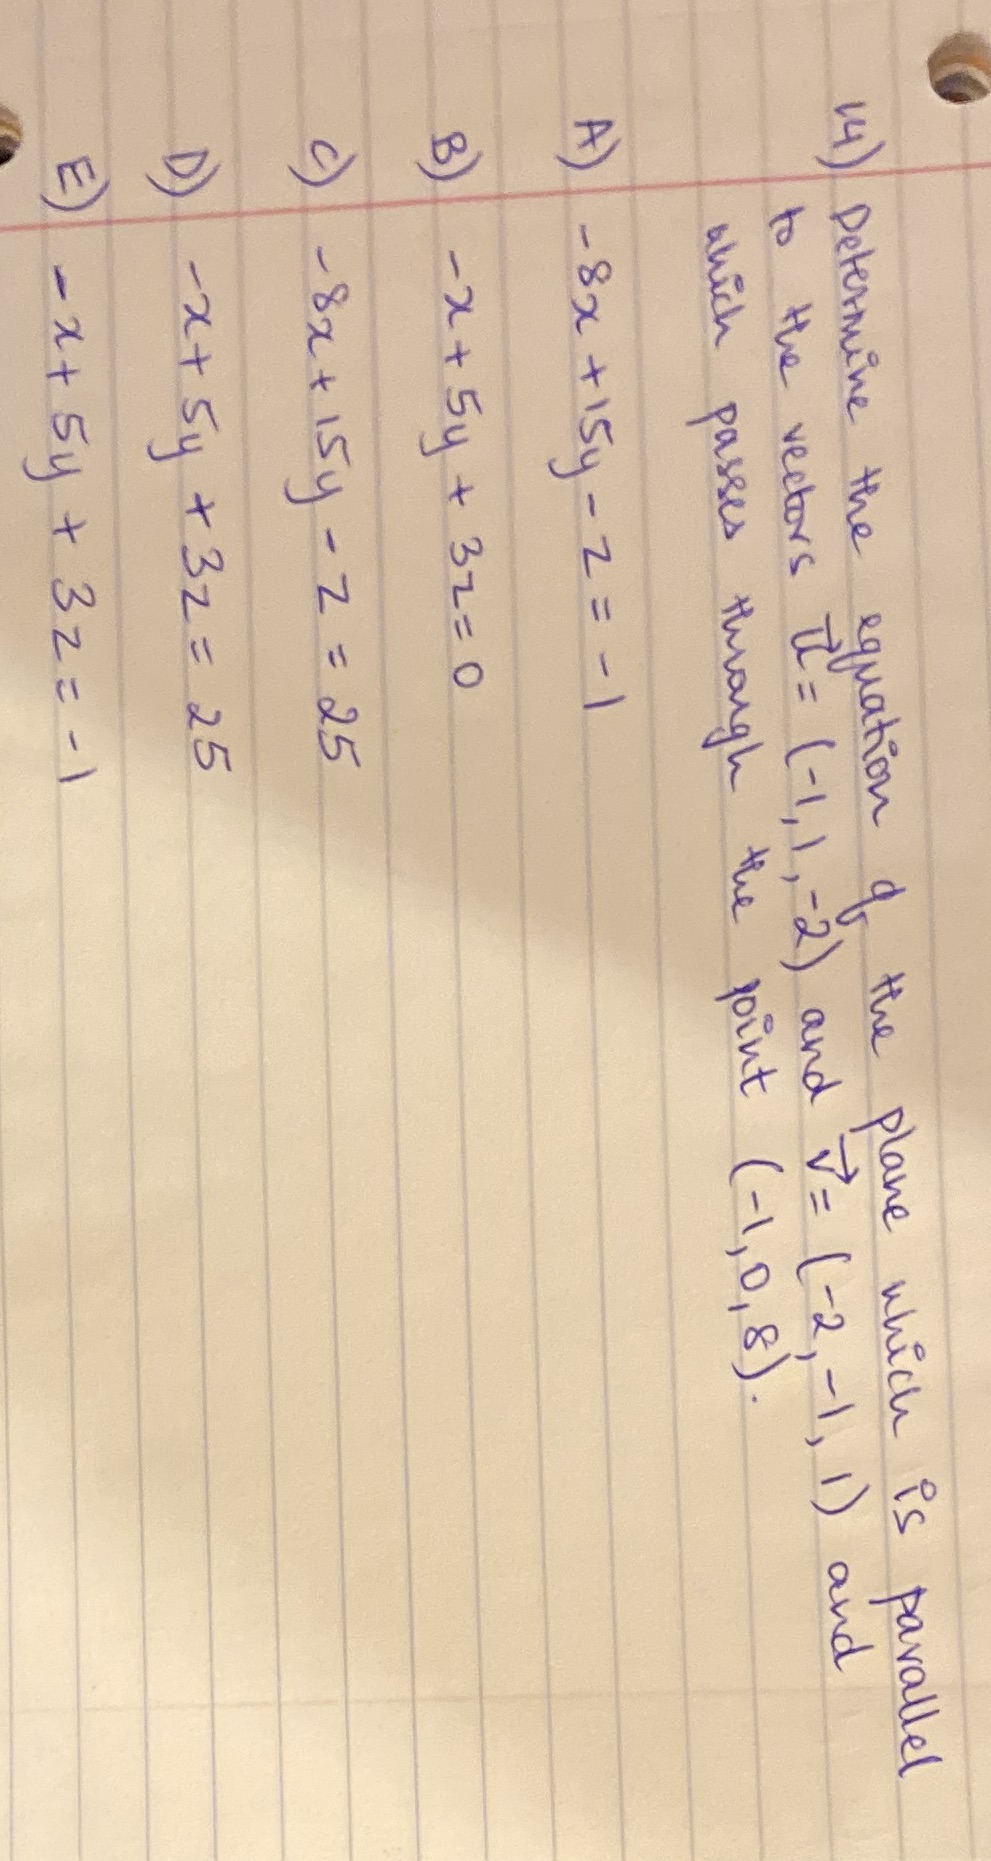 14) Determine the equation of the plane which is parallel
to the vectors u⃗ = (-1, 1, -2) and v⃗ = (-2, -1, 1) and
which passes through the point (-1, 0, 8).
A) -8x + 15y - z = -1
B) -x + 5y + 3z = 0
C) -8x + 15y - z = 25
D) -x + 5y + 3z = 25
E) -x + 5y + 3z = -1